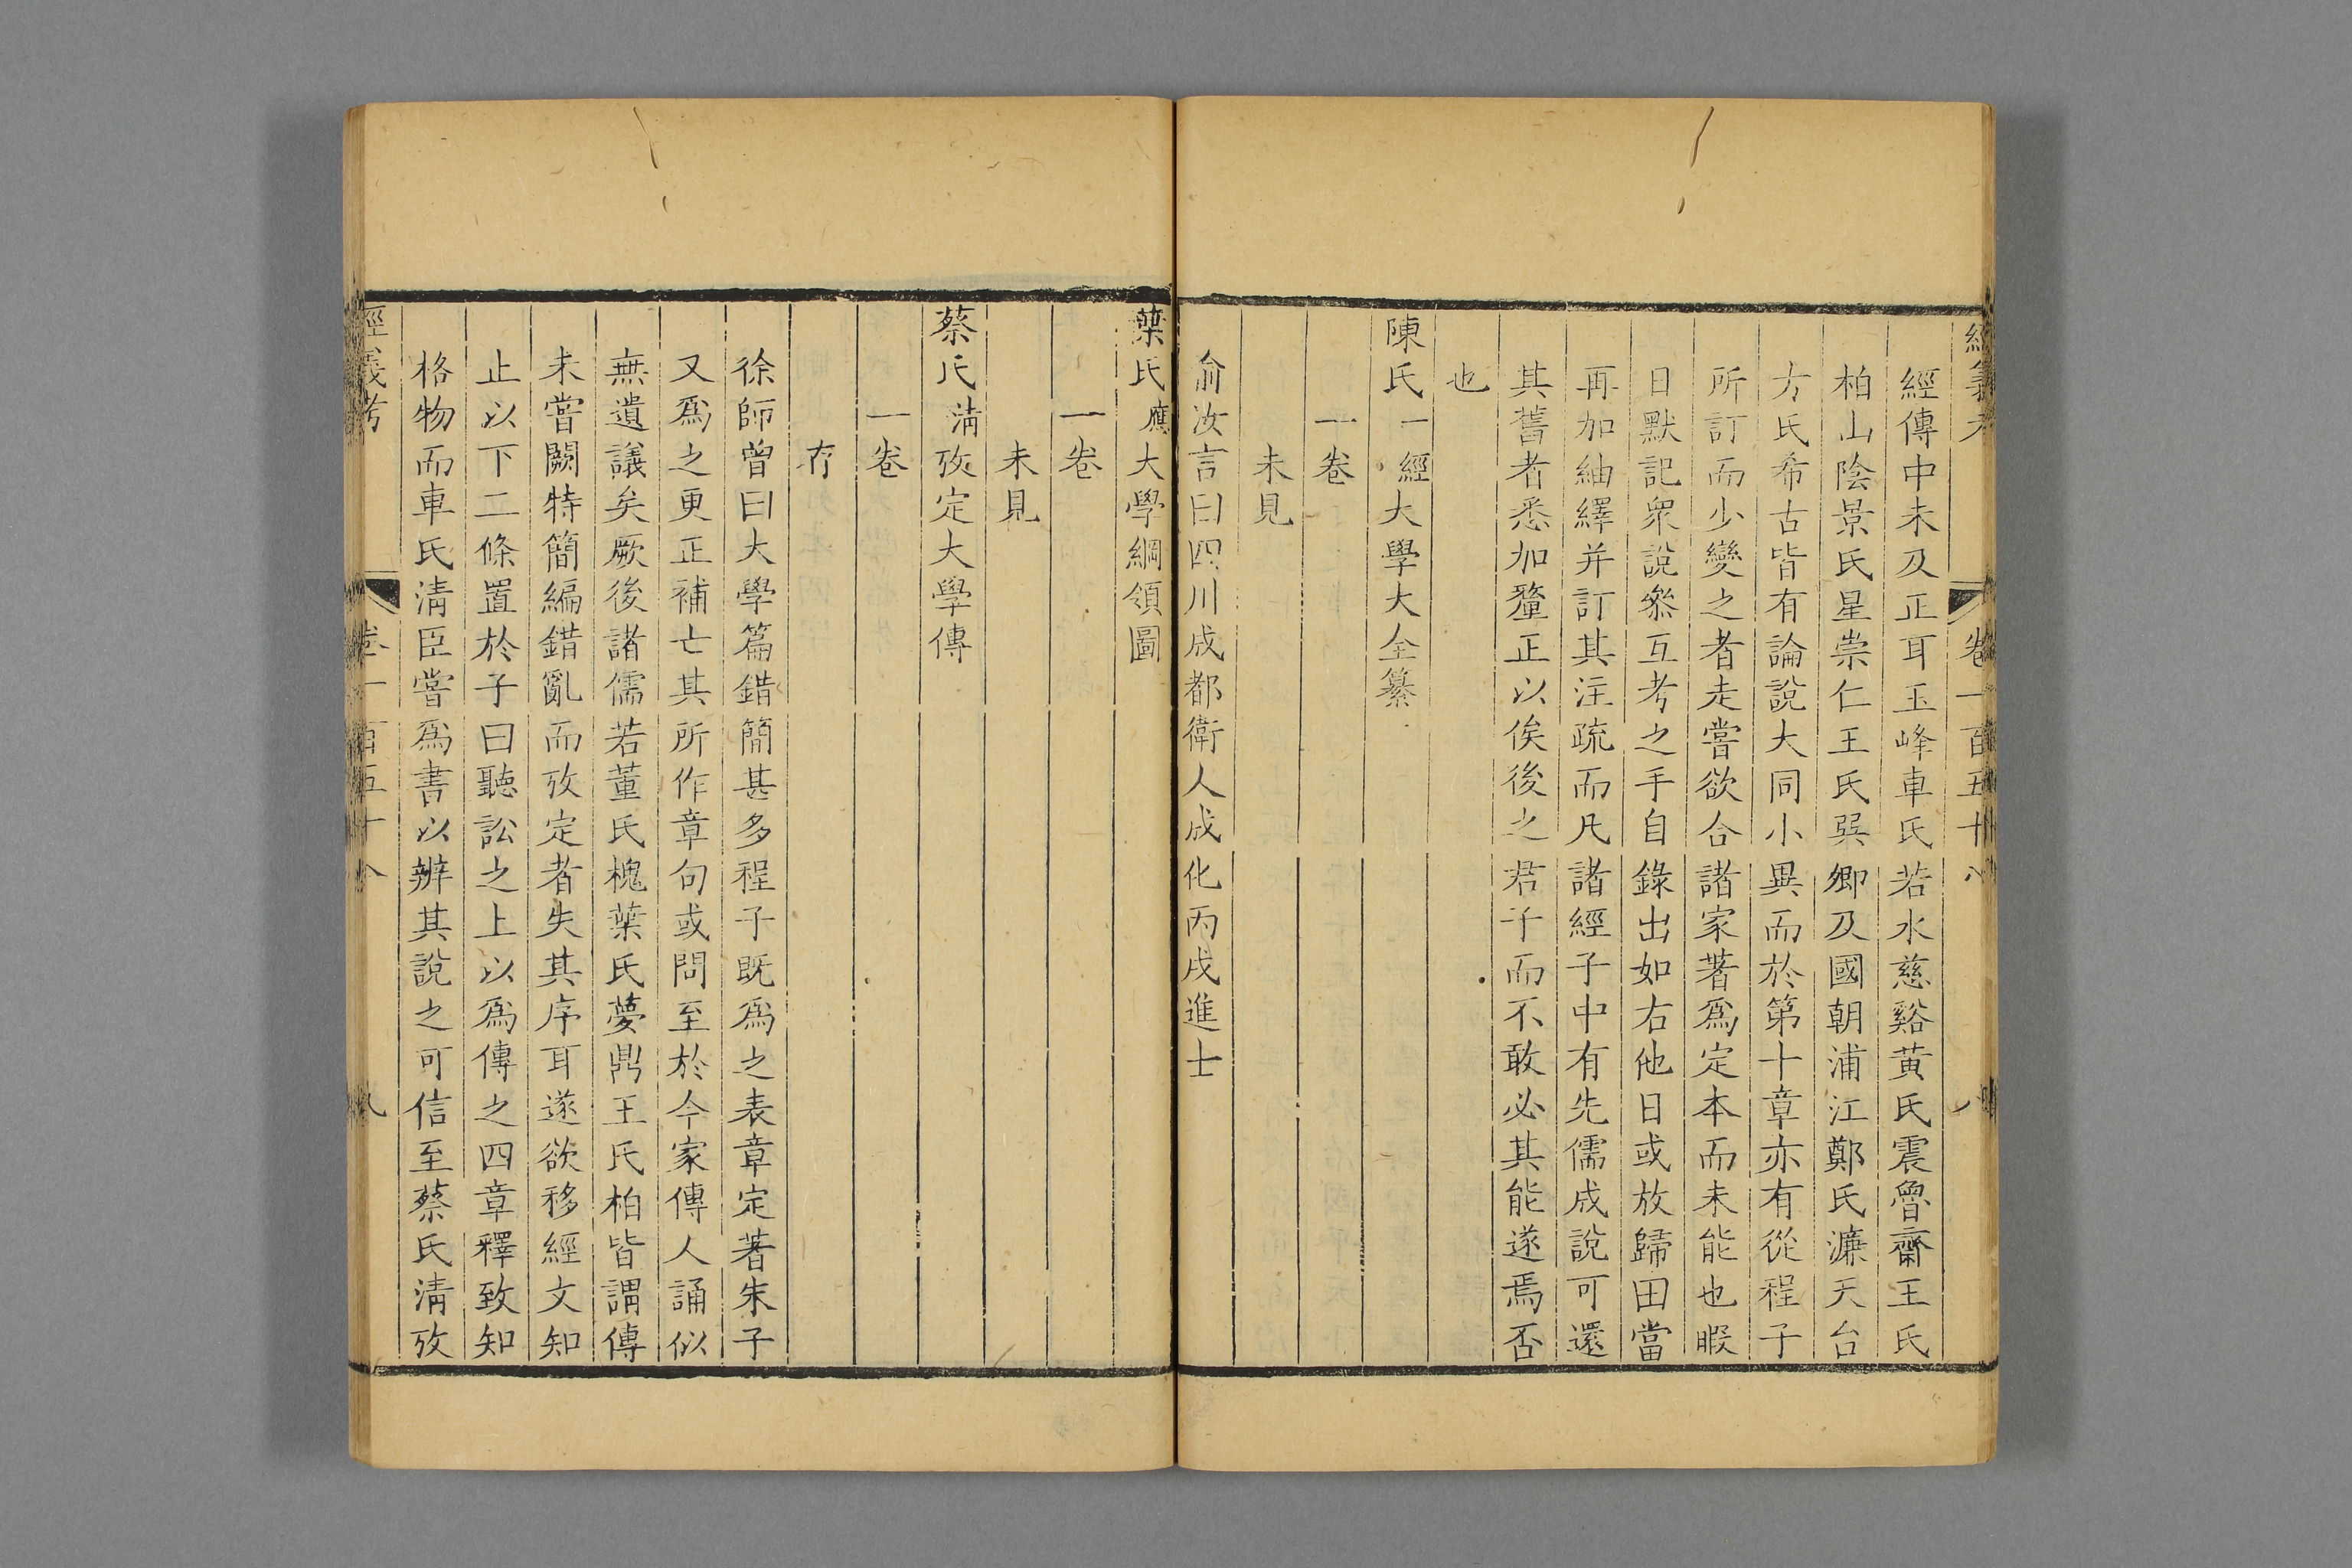 經義考 卷一百五十八 八
經傳中未及正耳玉峰車氏若水慈谿黃氏震魯齋王氏
柏山陰景氏星崇仁王氏巽卿及國朝浦江鄭氏濂天台
方氏希古皆有論說大同小異而於第十章亦有從程子
所訂而少變之者走嘗欲合諸家著爲定本而未能也暇
日默記衆說叅互考之手自錄出如右他日或放歸田當
再加紬繹并訂其注疏而凡諸經子中有先儒成說可還
其舊者悉加釐正以俟後之君子而不敢必其能遂焉否
也
陳氏一經大學大全纂
一卷
未見
俞汝言曰四川成都衛人成化丙戌進士
葉氏應大學綱領圖
一卷
未見
蔡氏清攷定大學傳
一卷
存
徐師曾曰大學篇錯簡甚多程子既爲之表章定著朱子
又爲之更正補亡其所作章句或問至於今家傳人誦似
無遺議矣厥後諸儒若董氏槐葉氏夢鼎王氏柏皆謂傳
未嘗闕特簡編錯亂而攷定者失其序耳遂欲移經文知
止以下二條置於子曰聽訟之上以爲傳之四章釋致知
格物而車氏清臣嘗爲書以辨其說之可信至蔡氏清攷
經義考 卷一百五十八 九